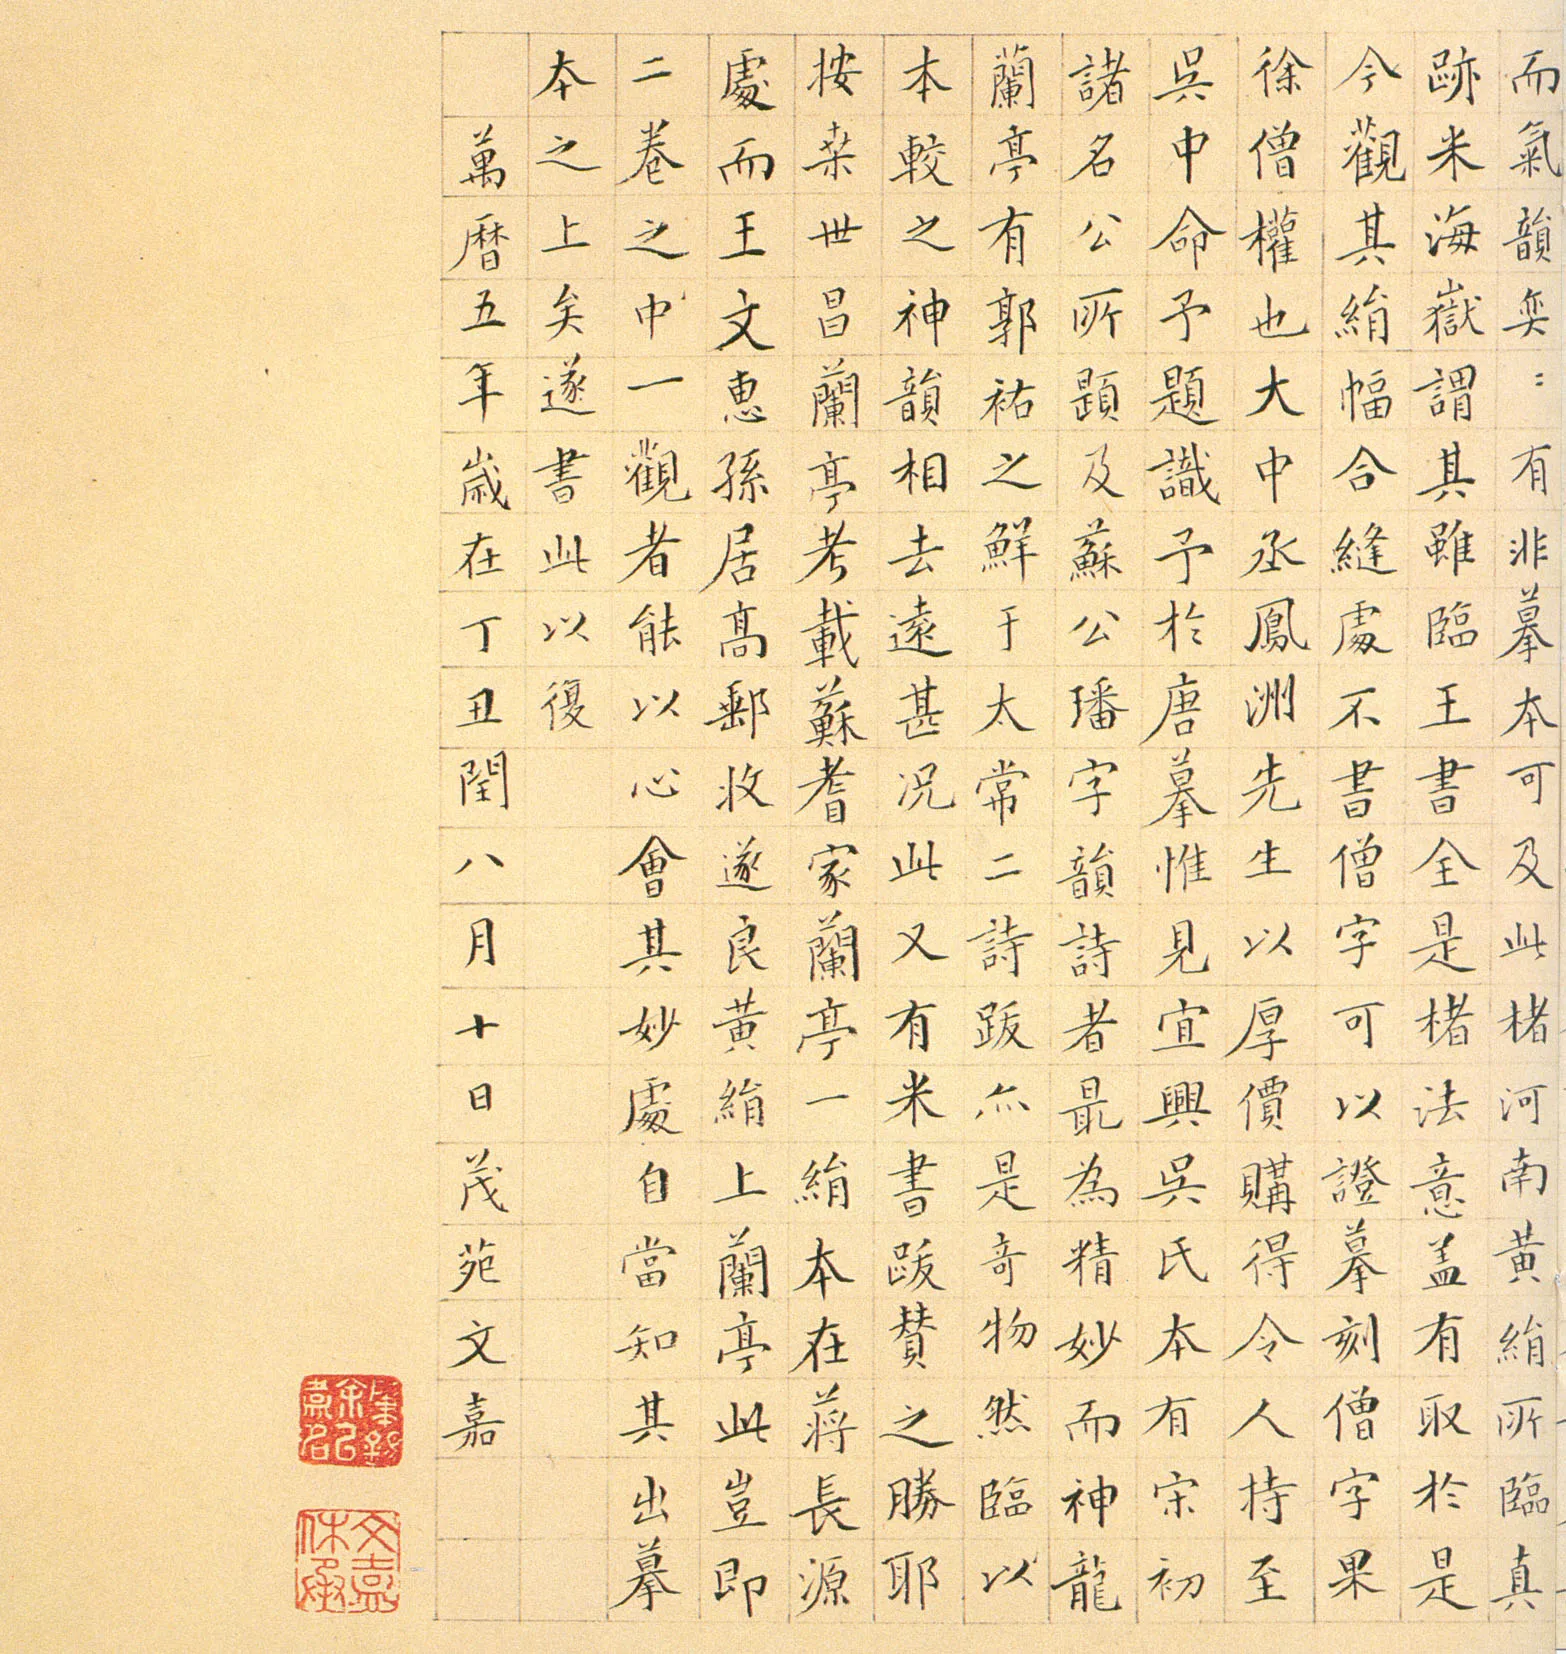 而氣韻奕〻有非摹本可及此楮河南黃絹所臨真
跡米海嶽謂其雖臨王書全是楮法意盖有取於是
今觀其絹幅合縫處不書僧字可以證摹刻僧字果
徐僧權也大中丞鳳洲先生以厚價購得令人持至
吳中命予題識予於唐摹惟見宜興吳氏本有宋初
諸名公所題及蘇公璠字韻詩者最為精妙而神龍
蘭亭有郭祐之鮮于太常二詩跋亦是奇物然臨以
本較之神韻相去遠甚况此又有米書跋賛之勝耶
按桒世昌蘭亭考載蘇耆家蘭亭一絹本在蔣長源
處而王文惠孫居高郵收遂良黃絹上蘭亭此豈即
二卷之中一觀者能以心會其妙處自當知其出摹
本之上矣遂書此以復
萬曆五年歲在丁丑閏八月十日茂苑文嘉
文嘉休承